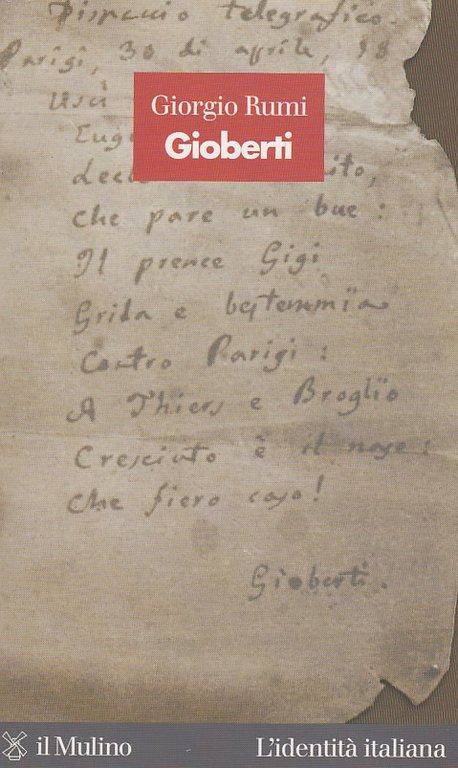 Dispaccio telegrafico.
Parigi, 30 di aprile, 18
Uscì
Giorgio Rumi
Gioberti
Euge
che pare un bue:
Il prence Gigi
Grida e bestemmia
Contro Parigi:
A Thiers e Broglio
Cresciuto è il naso:
Che fiero caso!
Gioberti.
il Mulino
L'identità italiana